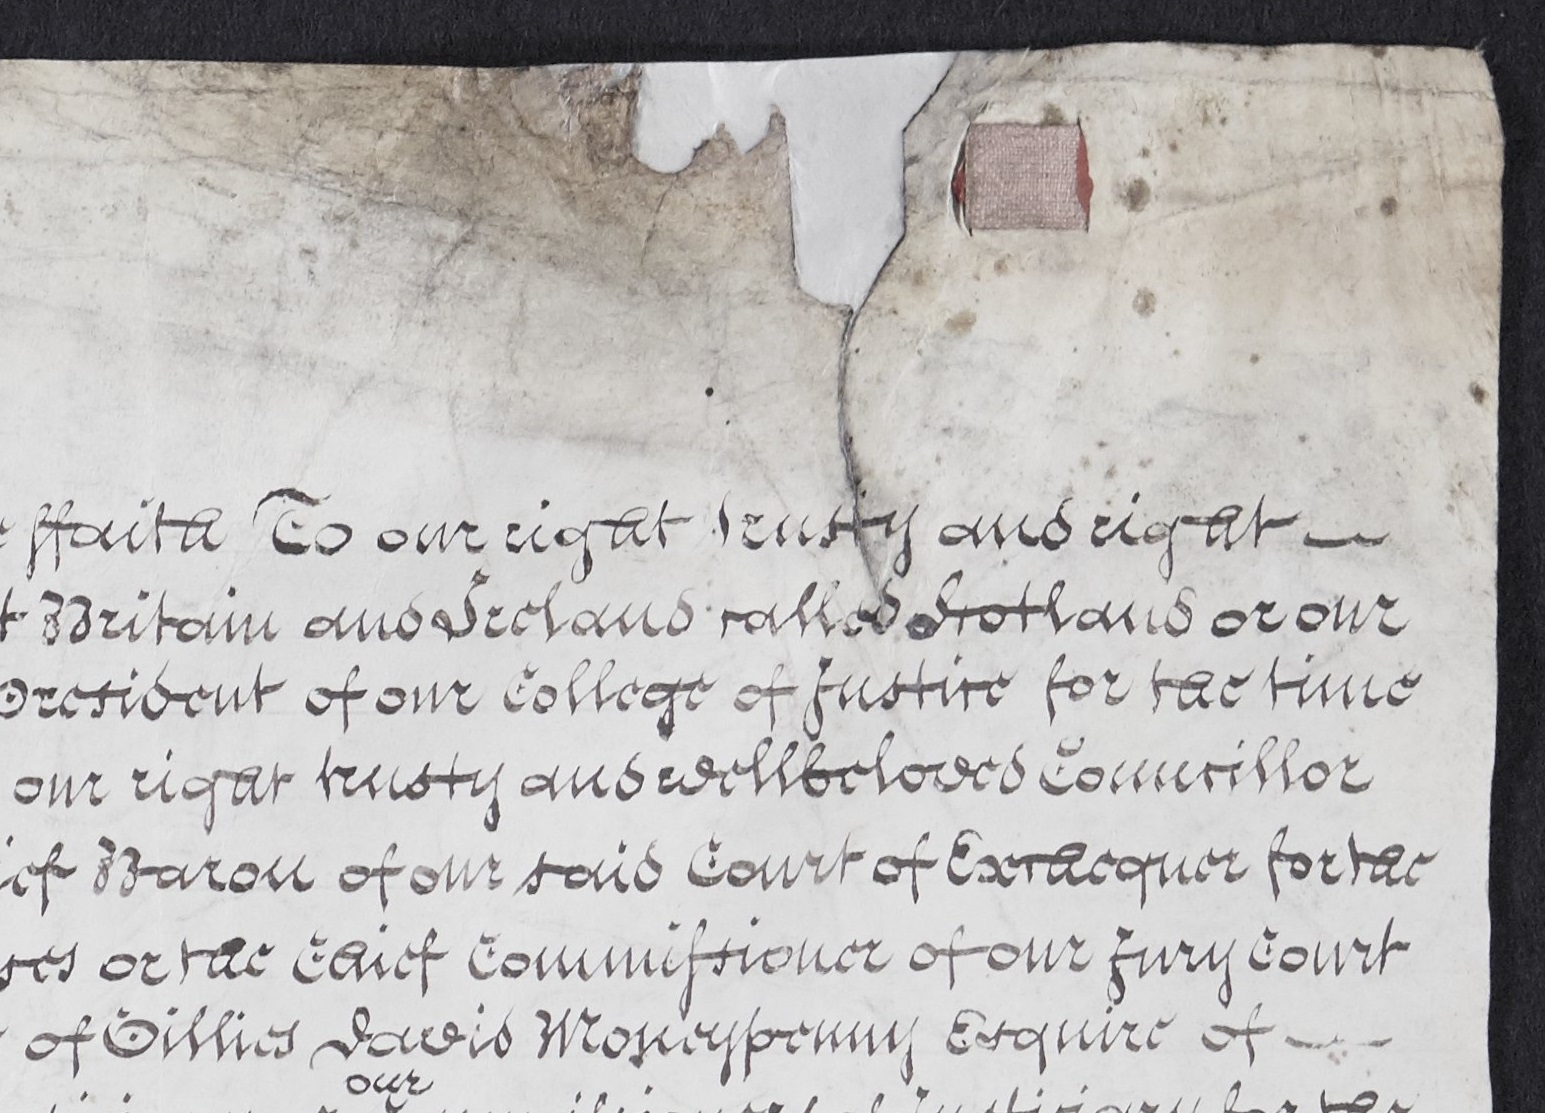 ffaith To our right trusty and right
Britain and Ireland called Scotland or our
President of our College of Justice for the time
our right trusty and wellbeloved Councillor
Baron of our said Court of Exchequer for the
or the Chief Commissioner of our Jury Court
of Gillies David Moneypenny Esquire of
our
of Justiciary for the